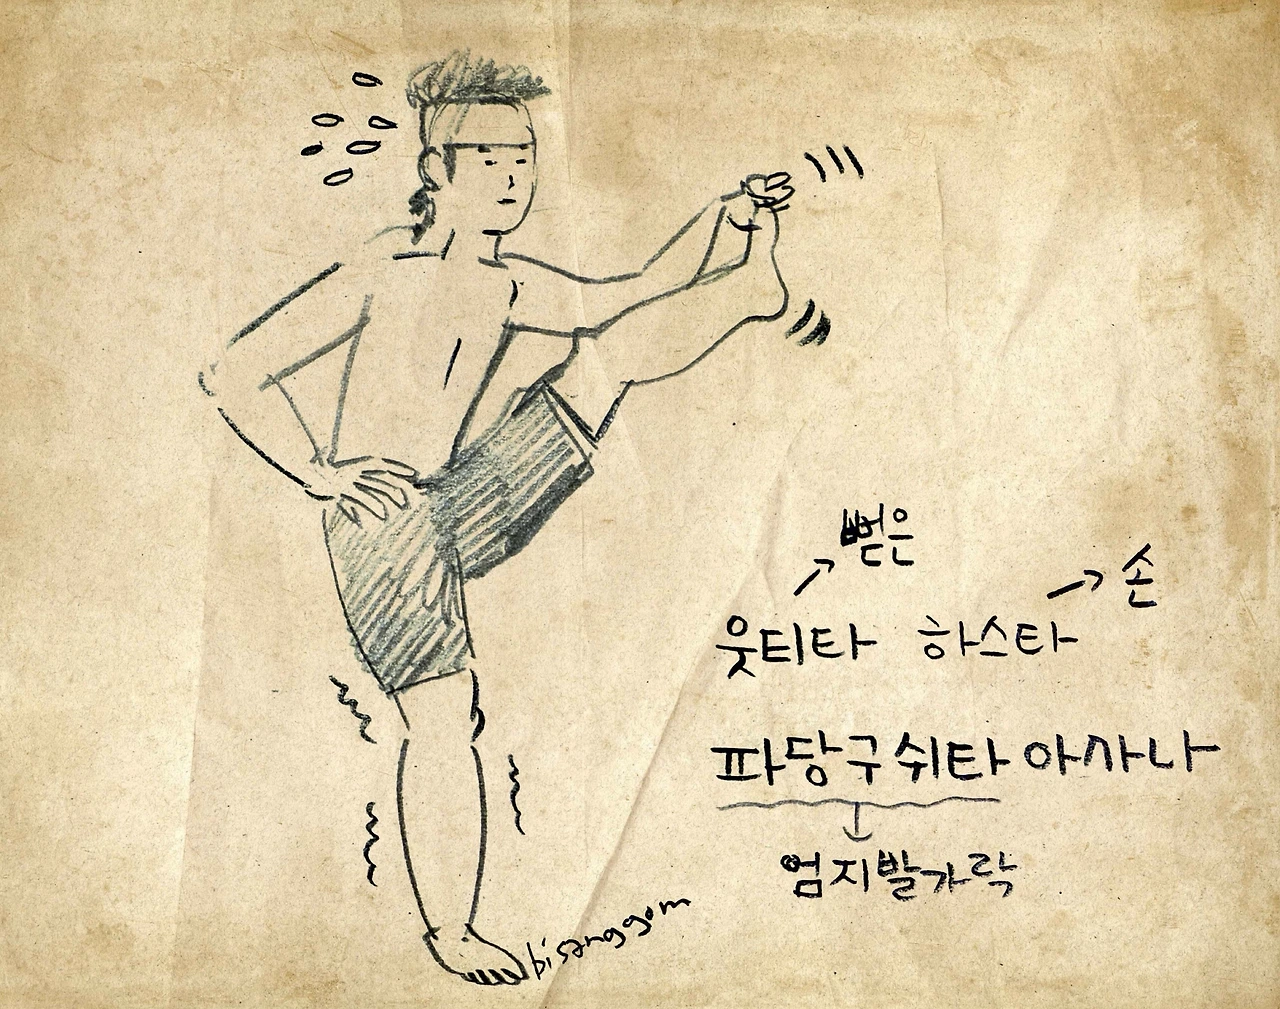 뻗은
손
웃티타 하스타
파당구쉬타 아사나
엄지발가락
bisanggom